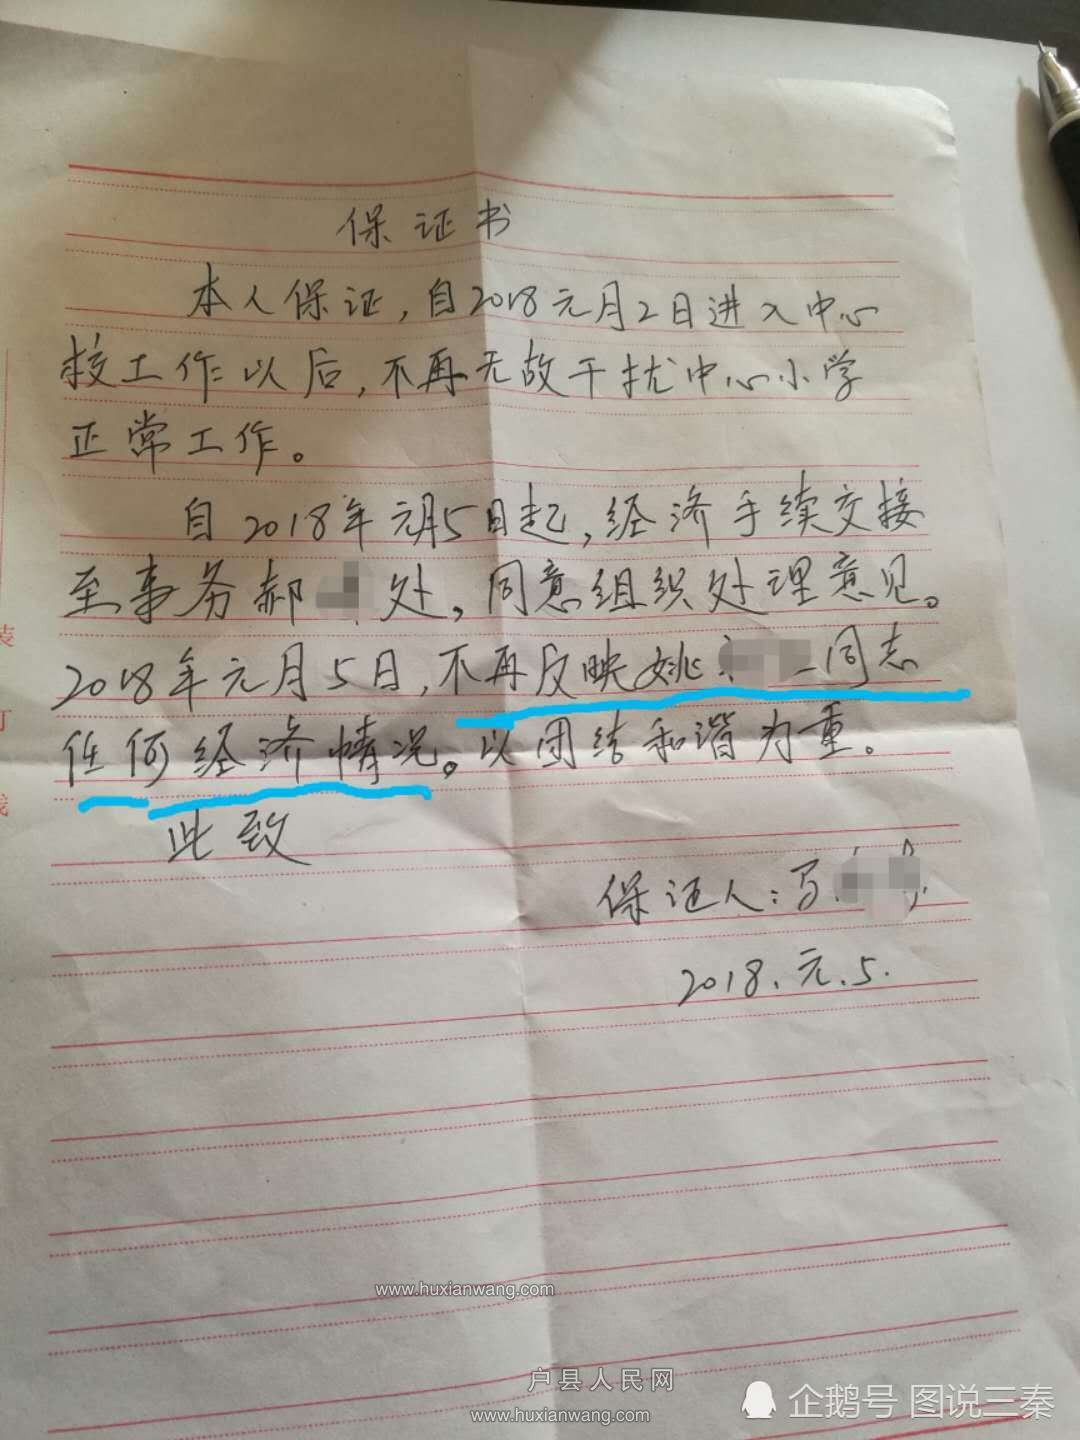 保证书
本人保证,自2018元月2日进入中心
校工作以后,不再无故干扰中心小学
正常工作。
自2018年元月5日起,经济手续交接
至事务郝 处,同意组织处理意见。
2018年元月5日,不再反映姚 同志
任何经济情况。以团结和谐为重。
此致
保证人:马
2018.元.5.
装
订
www.huxianwang.com
户县人民网
www.huxianwang.com
企鹅号 图说三秦